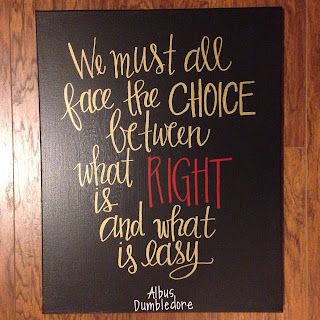 We must all
face the CHOICE
between
what RIGHT
is
and what
is easy
Albus,
Dumbledore